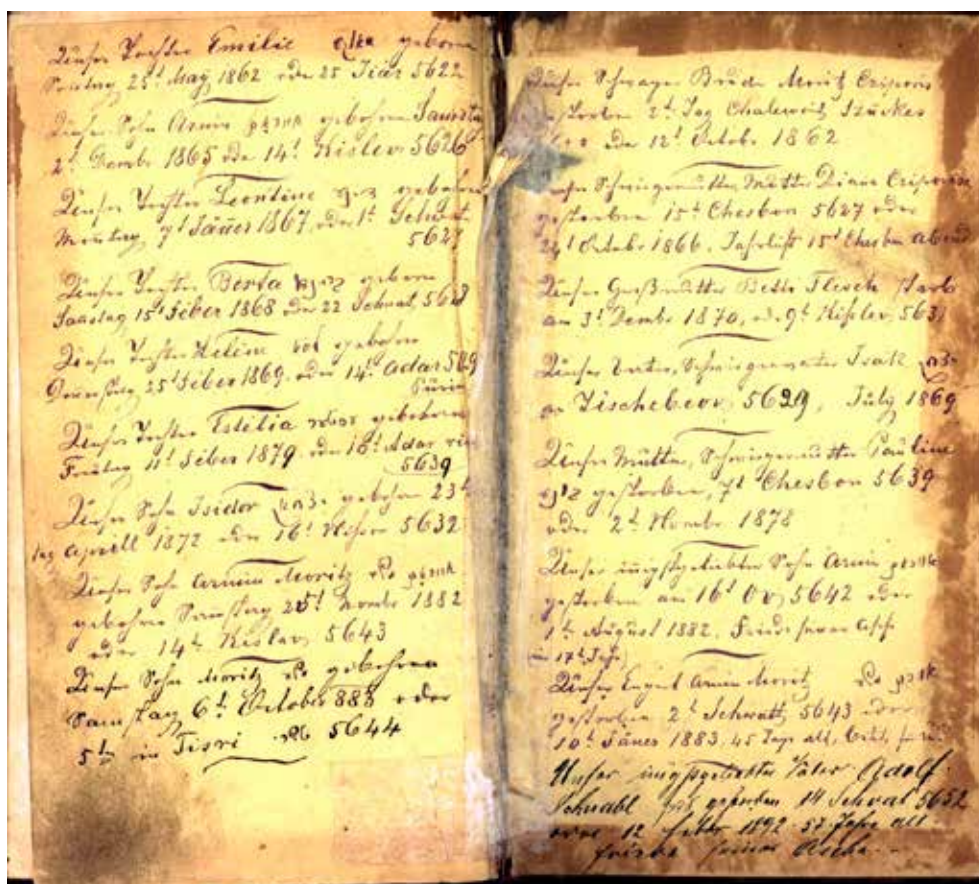 Unser Tochter Emilie geborn
Sontag 25t May 1862 oder 25 Jiar 5622
Unser Sohn Armin gebohrn Samstag
2t Dembr 1865 oder 14t Kislev 5626
Unser Tochter Leontine gebohrn
Montag 7t Jäner 1867, oder 1t Schwat
5627
Unser Tochter Berta geborn
Samstag 15t Feber 1868 oder 22 Schwat, 5628
Unser Tochter Helene gebohrn
Donerstag 25t Feber 1869 oder 14t Adar 5629
Purim
Unser Tochter Estilia gebohrn
Freitag 11t Feber 1879 oder 18t Adar
5639
Unser Sohn Isidor gebohrn 23t
Aprill 1872 oder 16t Nissan 5632
Unser Sohn Armin Moritz
gebohrn Samstag 25t Novembr 1882
oder 14t Kislev 5643
Unser Sohn Moritz gebohrn
Samstag 6t October 883 oder
5t in Tisri 5644
Unser Schwager Bruder Moritz
gestorben 2t Tag Chalemoid Sückes
oder 12t Octobr 1862
Unser Schwiegermutter Mutter Diane
gestorben 15t Chesbon 5627 oder
24t Octobr 1866. Jahrlicht 15t Chesbon abend
Unser Großmutter Betti Flesch starb
am 3t Dembr 1870, od. 9t Kislev, 5631
Unser Vater, Schwiegervater Isak
an Tischebeov 5629, July 1869
Unser Mutter, Schwiegermutter Pauline
gestorben, 7t Chesbon 5639
oder 2t Novembr 1878
Unser innigstgeliebter Sohn Armin
gestorben am 16t Ov 5642 oder
1t August 1882. Friede seiner Asche
im 17t Jahr
Unser Armin Moritz
gestorben 2t Schwatt 5643 oder
10t Jäner 1883. 45 Tage alt.
Unser innigstgeliebter Vater Adolf
Schnabl gestorben 14 Schvat 5652
oder 12 Feber 1892 57 Jahre alt
friede seiner Asche.